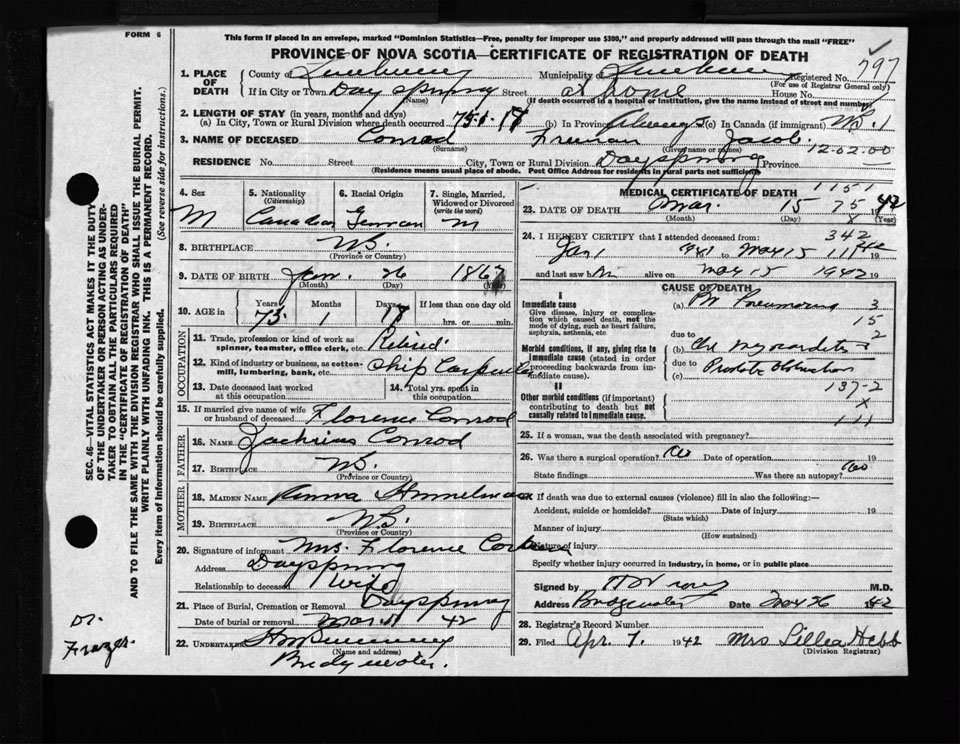 FORM 6
This form if placed in an envelope, marked "Dominion Statistics—Free, penalty for improper use $300," and properly addressed will pass through the mail "FREE"
PROVINCE OF NOVA SCOTIA—CERTIFICATE OF REGISTRATION OF DEATH
797
1. PLACE OF DEATH
County of Lunenburg Municipality of Lunenburg Registered No.
(For use of Registrar General only)
If in City or Town Day spring Street at home House No.
(Name) (If death occurred in a hospital or institution, give the name instead of street and number)
2. LENGTH OF STAY (in years, months and days)
(a) In City, Town or Rural Division where death occurred 75-1-17 (b) In Province Always (c) In Canada (if immigrant) N.S. 1
3. NAME OF DECEASED Conrad Freeman Jacob
(Surname) (Given name or names) 12.02.00
RESIDENCE No. Street City, Town or Rural Division Dayspring Province
(Residence means usual place of abode. Post Office Address for residents in rural parts not sufficient)
4. Sex M
5. Nationality (Citizenship) Canadian
6. Racial Origin German
7. Single, Married, Widowed or Divorced (write the word) M
8. BIRTHPLACE N.S.
(Province or Country)
9. DATE OF BIRTH Jan. 26 1867
(Month) (Day) (Year)
10. AGE in Years 75 Months 1 Days 17 If less than one day old hrs. or min.
OCCUPATION
11. Trade, profession or kind of work as spinner, teamster, office clerk, etc. Retired
12. Kind of industry or business, as cotton-mill, lumbering, bank, etc. Ship Carpenter
13. Date deceased last worked at this occupation
14. Total yrs. spent in this occupation
15. If married give name of wife or husband of deceased Florence Conrod
FATHER
16. NAME Conrod
17. BIRTHPLACE N.S.
(Province or Country)
MOTHER
18. MAIDEN NAME
19. BIRTHPLACE N.S.
(Province or Country)
20. Signature of informant Mrs. Florence
Address Dayspring
Relationship to deceased Wife
21. Place of Burial, Cremation or Removal Dayspring
Date of burial or removal Mar. 42
22. UNDERTAKER
(Name and address)
Bridgewater.
MEDICAL CERTIFICATE OF DEATH
1151
23. DATE OF DEATH Mar. 15 75 42
(Month) (Day) x (Year)
24. I HEREBY CERTIFY that I attended deceased from: 342
Jan 1 to Mar 15 19
and last saw h alive on Mar 15 1942 19
CAUSE OF DEATH
I
Immediate cause
Give disease, injury or complication which caused death, not the mode of dying, such as heart failure, asphyxia, asthenia, etc
(a) Br Pneumonia 3
15
due to 2
Morbid conditions, if any, giving rise to immediate cause (stated in order proceeding backwards from immediate cause).
(b) Chr Myocarditis
due to Prostate Obstruction
(c)
II
137-2
Other morbid conditions (if important) contributing to death but not causally related to immediate cause.
x
111
25. If a woman, was the death associated with pregnancy?
26. Was there a surgical operation? No Date of operation 19
State findings Was there an autopsy? No
27. If death was due to external causes (violence) fill in also the following:—
Accident, suicide or homicide? Date of injury 19
(State which)
Manner of injury
(How sustained)
Nature of injury
Specify whether injury occurred in industry, in home, or in public place
Signed by M.D.
Address Bridgewater Date 1942
28. Registrar's Record Number
29. Filed Apr. 7. 1942 Mrs Lillia Hebb
(Division Registrar)
SEC. 46—VITAL STATISTICS ACT MAKES IT THE DUTY
OF THE UNDERTAKER OR PERSON ACTING AS UNDER-
TAKER TO OBTAIN ALL THE PARTICULARS REQUIRED
IN THE "CERTIFICATE OF REGISTRATION OF DEATH"
AND TO FILE THE SAME WITH THE DIVISION REGISTRAR WHO SHALL ISSUE THE BURIAL PERMIT.
WRITE PLAINLY WITH UNFADING INK. THIS IS A PERMANENT RECORD.
Every item of Information should be carefully supplied.
(See reverse side for instructions.)
Dr.
Frazer